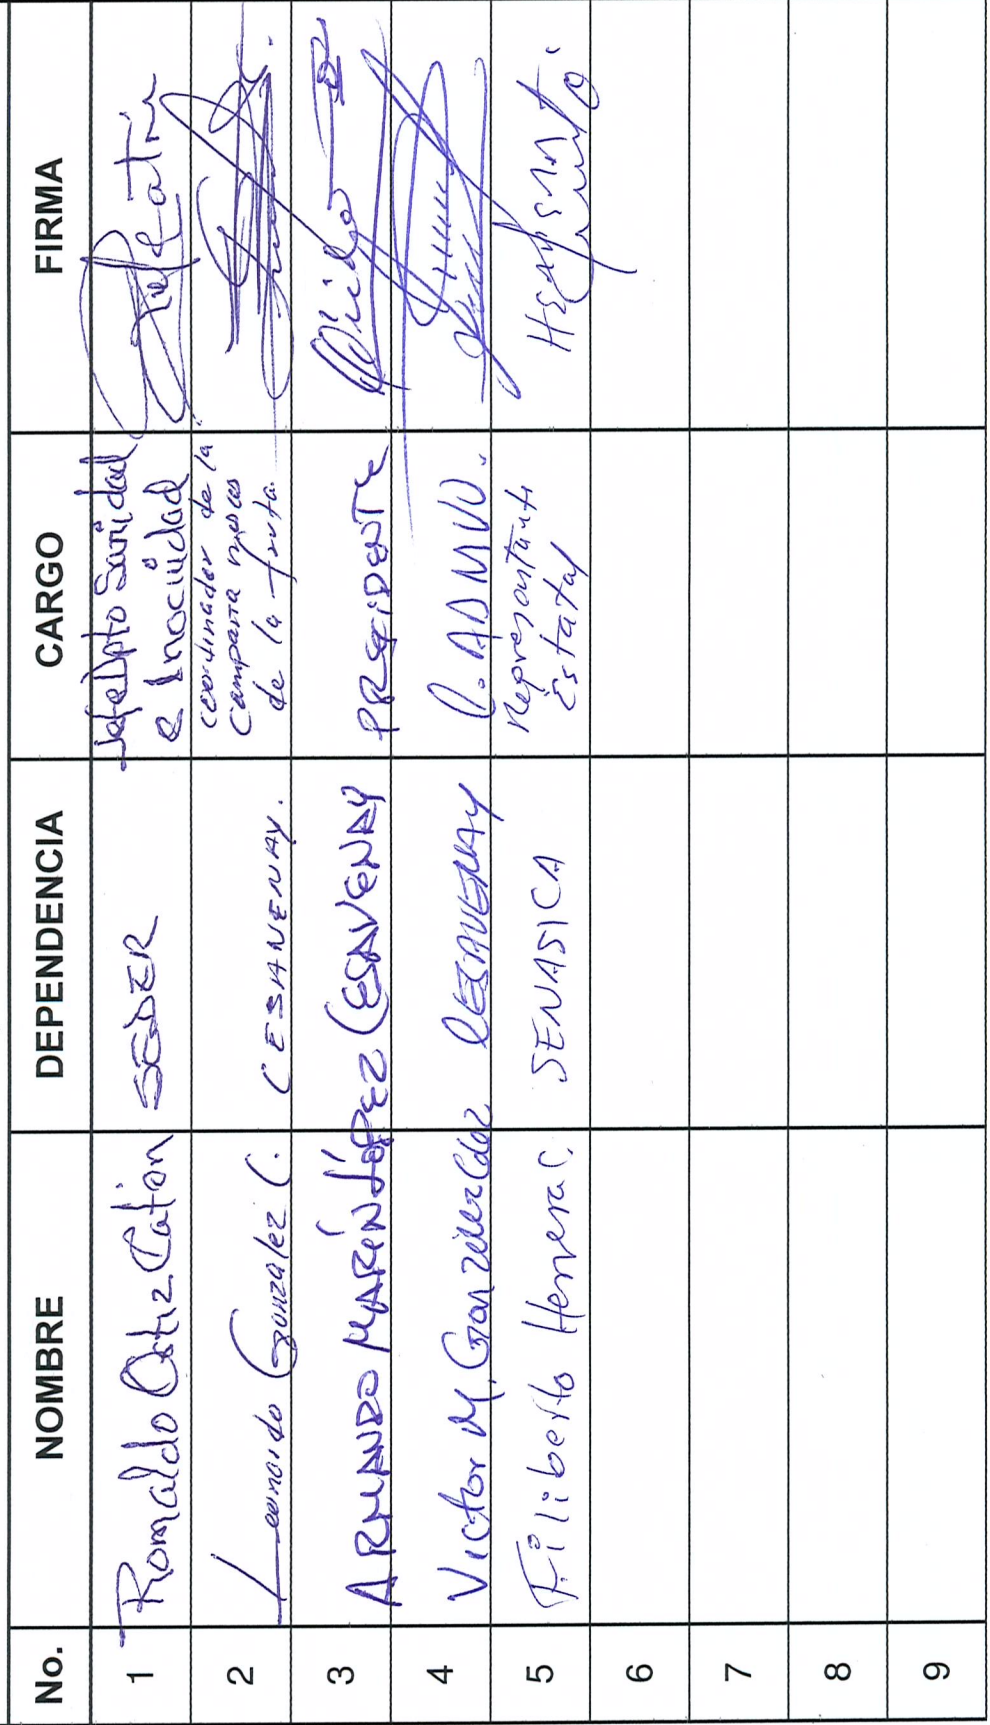 No. NOMBRE DEPENDENCIA CARGO FIRMA
1 Romaldo Ortiz Catón SEDER Jefe Dpto Sanidad
e Inocuidad
2 Leonardo González C. CESAVENAY. coordinador de la
campaña moscas
de la fruta.
3 ARMANDO MARÍN LÓPEZ CESAVENAY PRECIDENTE
4 Victor M. González CESAVENAY C. ADMVO.
5 Filiberto Herrera C. SENASICA Representante
Estatal
6
7
8
9